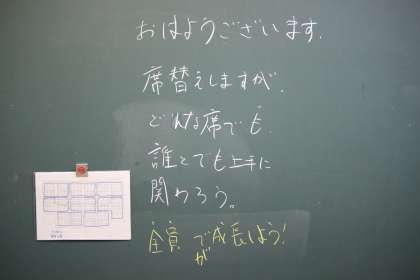 おはようございます.
席替えしますが、
どんな席でも、
誰とでも上手に
関わろう。
全員で成長しよう!
が